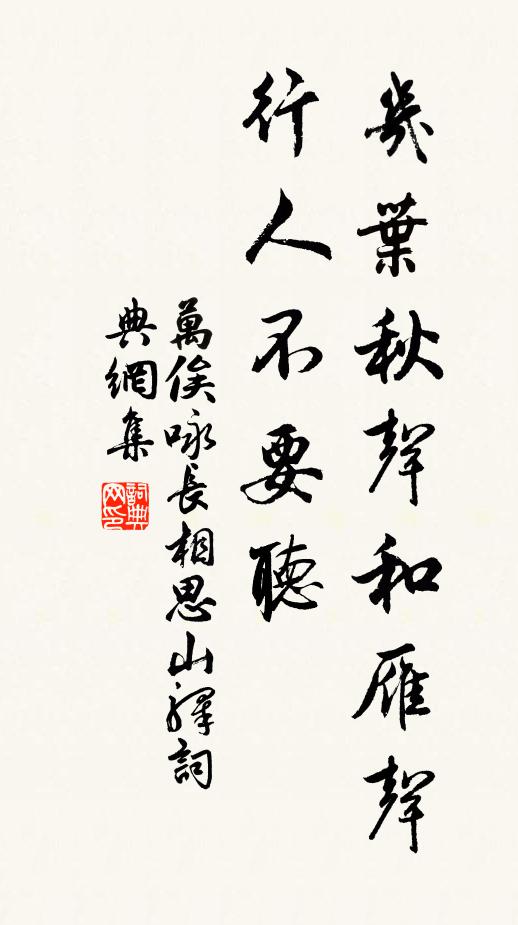 幾葉秋聲和雁聲
行人不要聽
萬俟咏長相思山驛詞
典網集
詞典网印